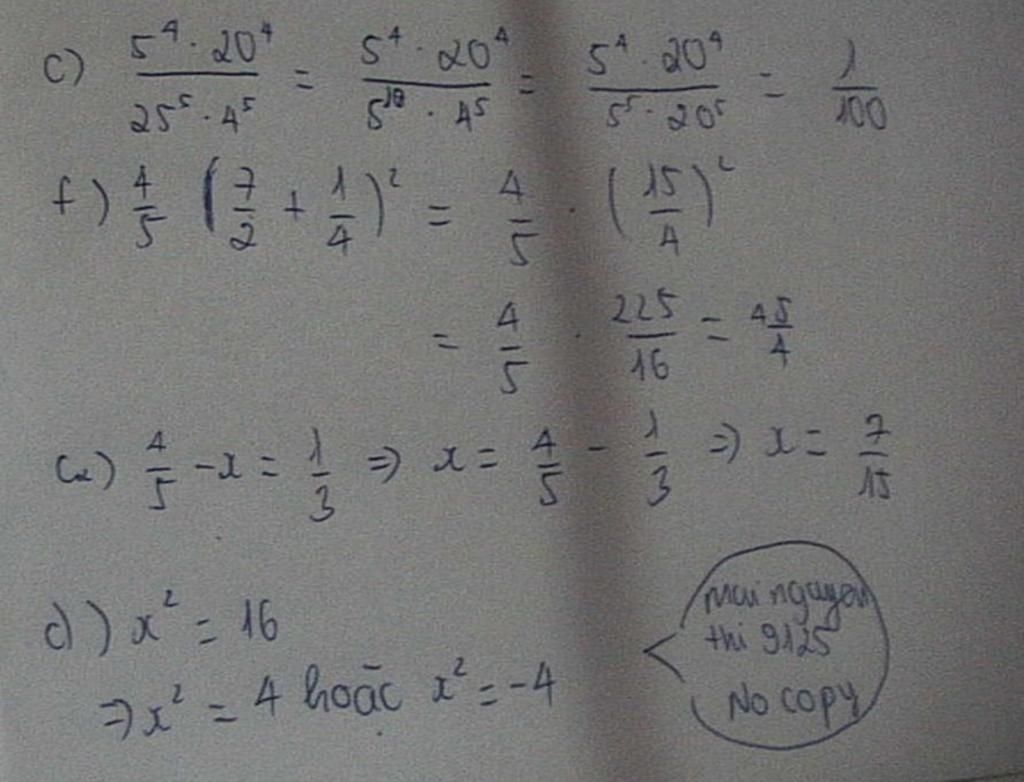 c) 5⁴ · 20⁴ / 25⁵ · 4⁵ = 5⁴ · 20⁴ / 5¹⁰ · 4⁵ = 5⁴ · 20⁴ / 5⁵ · 20⁵ = 1/100
f) 4/5 (7/2 + 1/4)² = 4/5 · (15/4)²
= 4/5 · 225/16 = 45/4
c₂) 4/5 - x = 1/3 ⇒ x = 4/5 - 1/3 ⇒ x = 7/15
d) x² = 16
⇒ x² = 4 hoặc x² = -4
mai nguyen
thi 9125
No copy